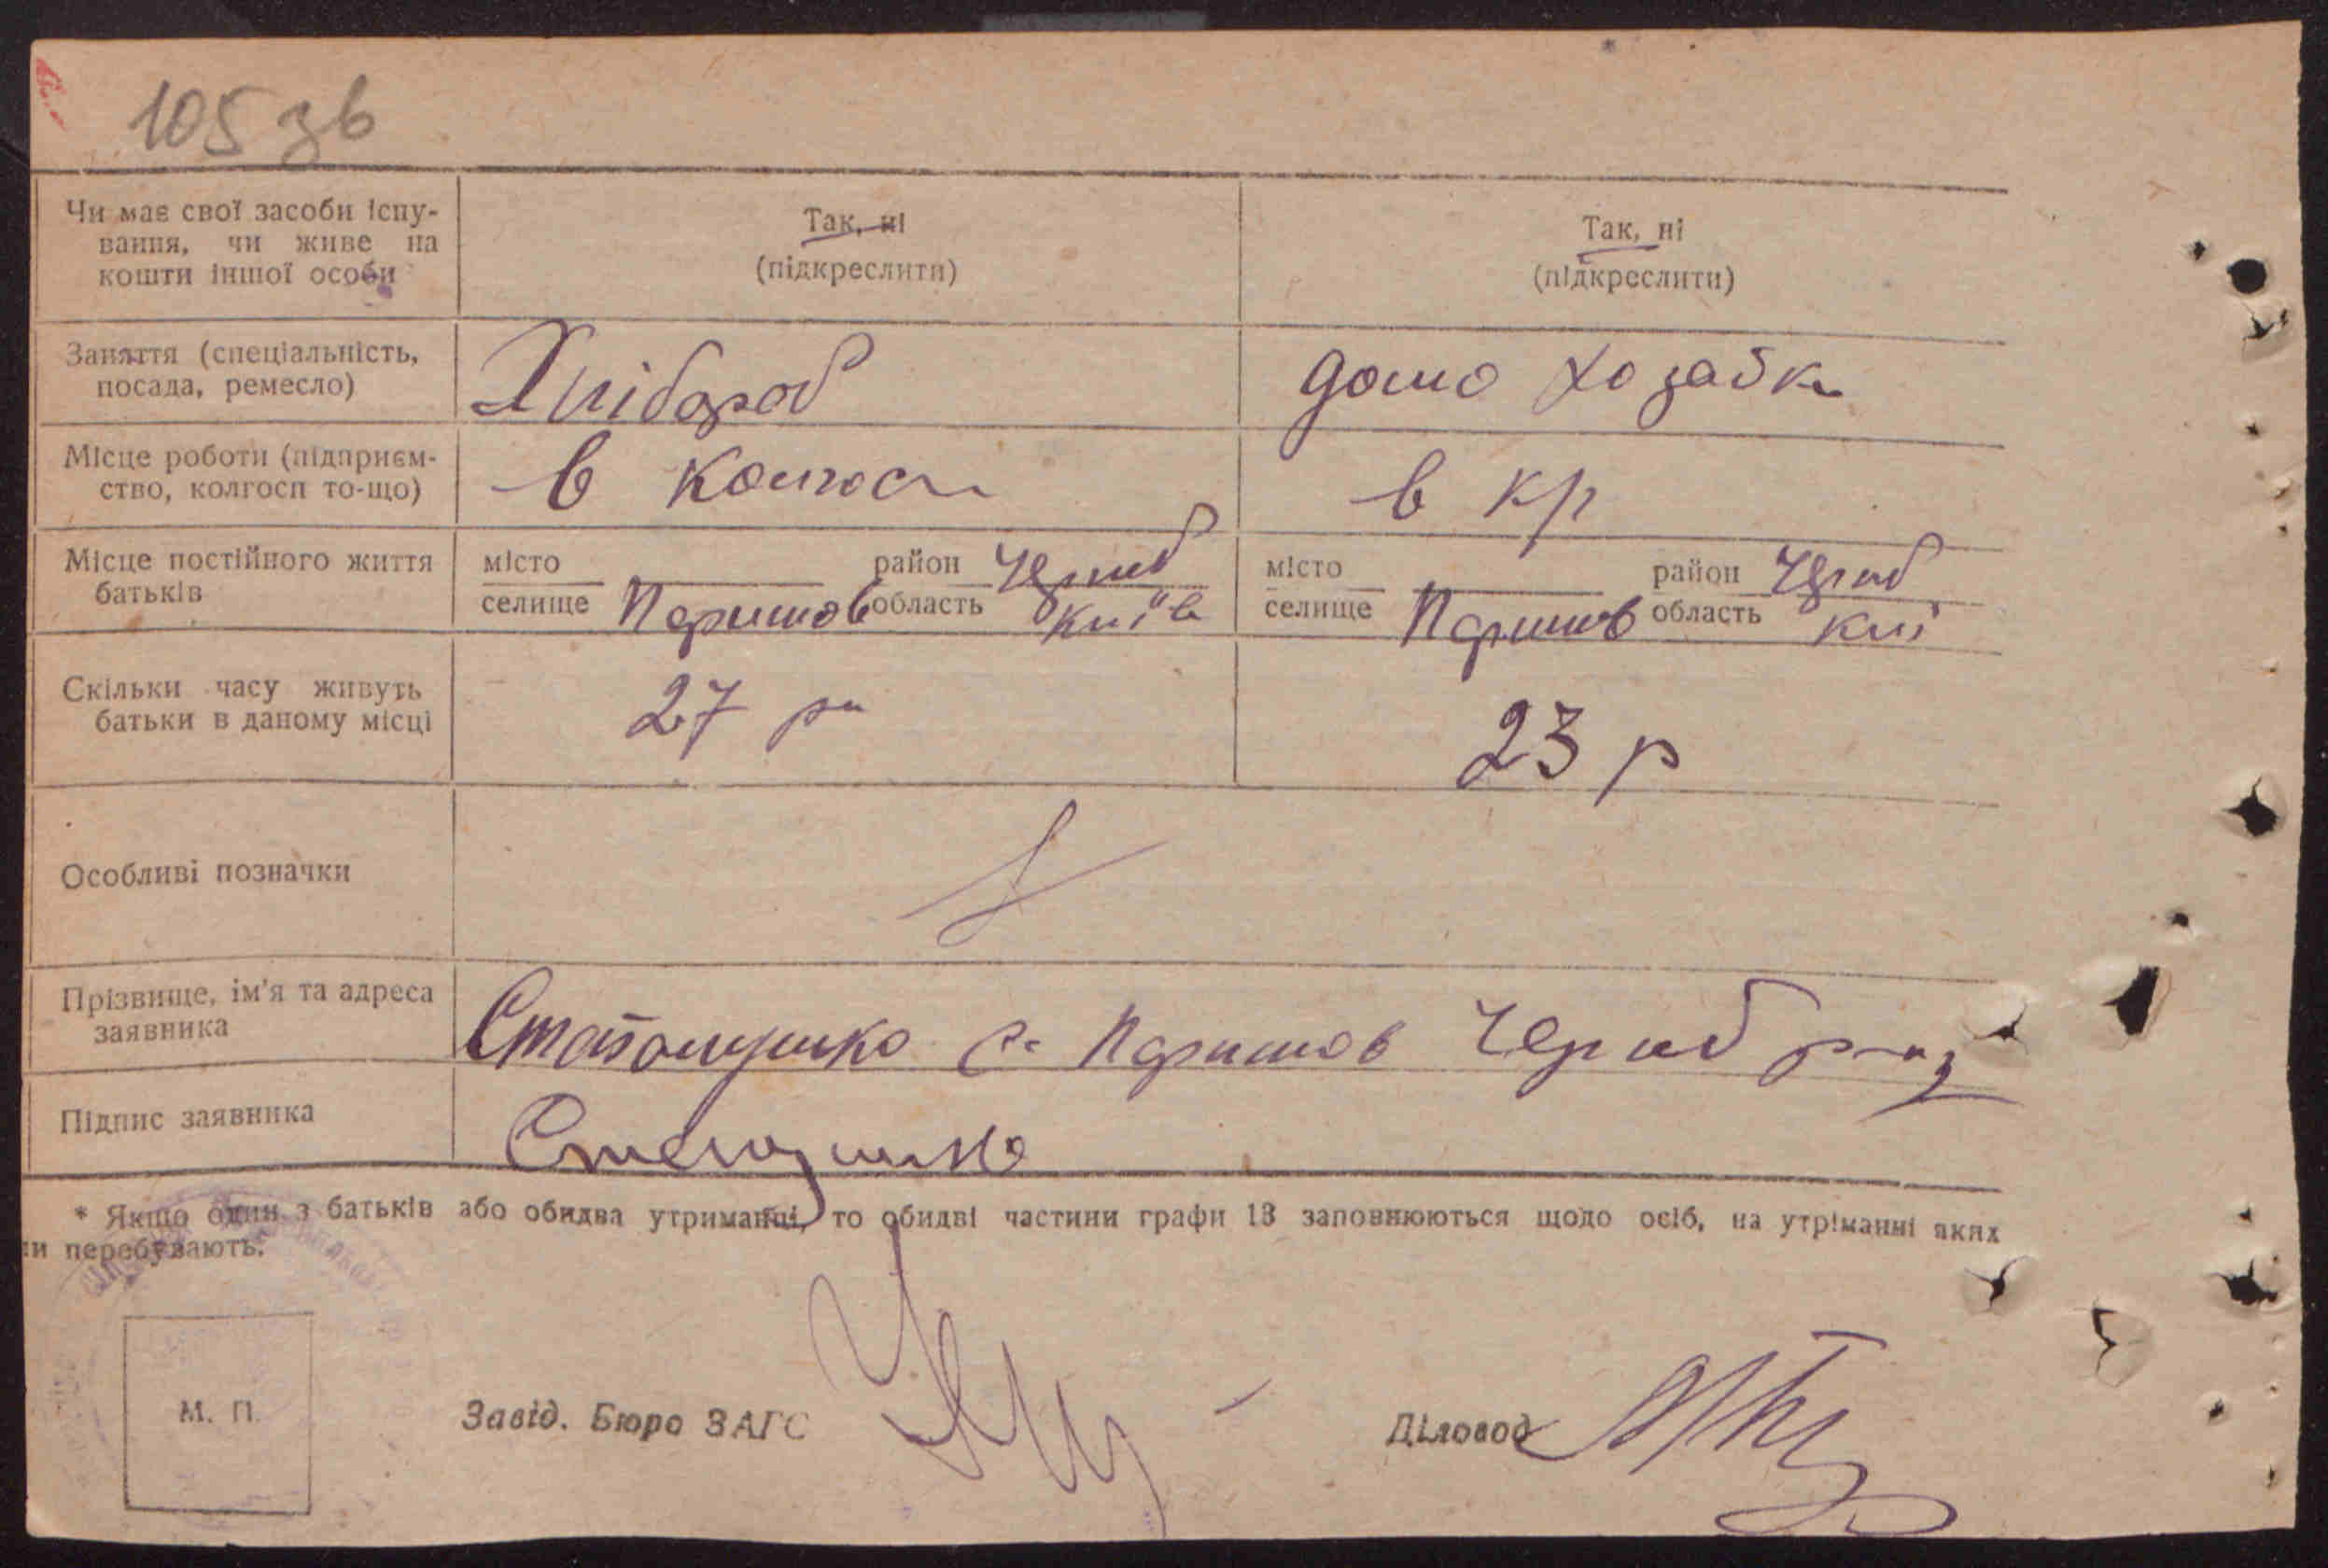 105 зв
Чи має свої засоби існу-
вання, чи живе на
кошти іншої особи
Так, ні
(підкреслити)
Так, ні
(підкреслити)
Заняття (спеціальність,
посада, ремесло)
Хлібороб
домо хозайка
Місце роботи (підприєм-
ство, колгосп то-що)
в колгосп
в кр
Місце постійного життя
батьків
місто район Чорноб
селище Паришов область Київ
місто район Чорноб
селище Паришов область Киї
Скільки часу живуть
батьки в даному місці
27 р
23 р
Особливі позначки
Прізвище, ім'я та адреса
заявника
с. Паришов Чорноб
Підпис заявника
* Якщо один з батьків або обидва утриманці, то обидві частини графи 13 заповнюються щодо осіб, на утріманні яких
и перебувають.
М. П.
Завід. Бюро ЗАГС
Діловод